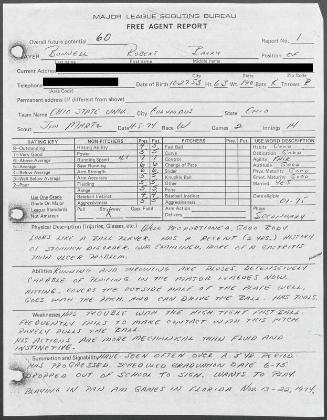 MAJOR LEAGUE SCOUTING BUREAU
FREE AGENT REPORT
Overall future potential 60 Report No. 1
PLAYER BONNELL ROBERT BARRY Position OF
Last name First name Middle name
Current Address
Telephone Date of Birth 10-27-53 Ht. 6-3 Wt. 190 Bats R Throws R
(Area Code)
Permanent address (if different from above)
Team Name OHIO STATE UNIV. City COLUMBUS State OHIO
Scout JIM MARTZ Date Race W Games 2 Innings 14
RATING KEY NON-PITCHERS Pres. Fut. PITCHERS Pres. Fut. USE WORD DESCRIPTION
8-Outstanding Hitting Ability Fast Ball Habits GOOD
7-Very Good Power Curve Dedication GOOD
6-Above Average Running Speed Control Agility FAIR
5-Average Base Running Change of Pace Aptitude GOOD
4-Below Average Arm Strength Slider Phys. Maturity GOOD
3-Well Below Average Arm Accuracy Knuckle Ball Emot. Maturity GOOD
2-Poor Fielding Other Married YES
Range Poise
Use One Grade Baseball Instinct Baseball Instinct Date eligible
Grade On Major Aggressiveness Aggressiveness 01-75
League Standards Pull Str. Away Opp. Field Arm Action Phase
Not Amateur Delivery SECONDARY
Physical Description (Injuries, Glasses, etc.) WELL PROPORTIONED, GOOD BODY
LOOKS LIKE A BALL PLAYER. HAS A RECENT (2 YRS.) HISTORY
OF STOMACH DISORDER. WAS EXAMINED, MORE OF A GASTRITIS
THAN ULCER PROBLEM.
Abilities RUNNING AND THROWING ARE SOLID, DEFENSIVELY
CAPABLE OF PLAYING IN THE MAJOR LEAGUES NOW.
HITTING, COVERS THE OUTSIDE HALF OF THE PLATE WELL,
GOES WITH THE PITCH, AND CAN DRIVE THE BALL. HAS TOOLS.
Weaknesses HAS TROUBLE WITH THE HIGH TIGHT FAST BALL.
FREQUENTLY FAILS TO MAKE CONTACT WITH THIS PITCH.
RARELY PULLS THE BALL.
HIS ACTIONS ARE MORE MECHANICAL THAN FLUID AND
INSTINCTIVE.
Summation and Signability HAVE SEEN OFTEN OVER A 3 YR. PERIOD.
HAS PROGRESSED. SCHEDULED GRADUATION DATE 6-75
DROPPED OUT OF SCHOOL TO SIGN. WANTS TO PLAY.
PLAYING IN PAN AM GAMES IN FLORIDA NOV. 13-22, 1974.